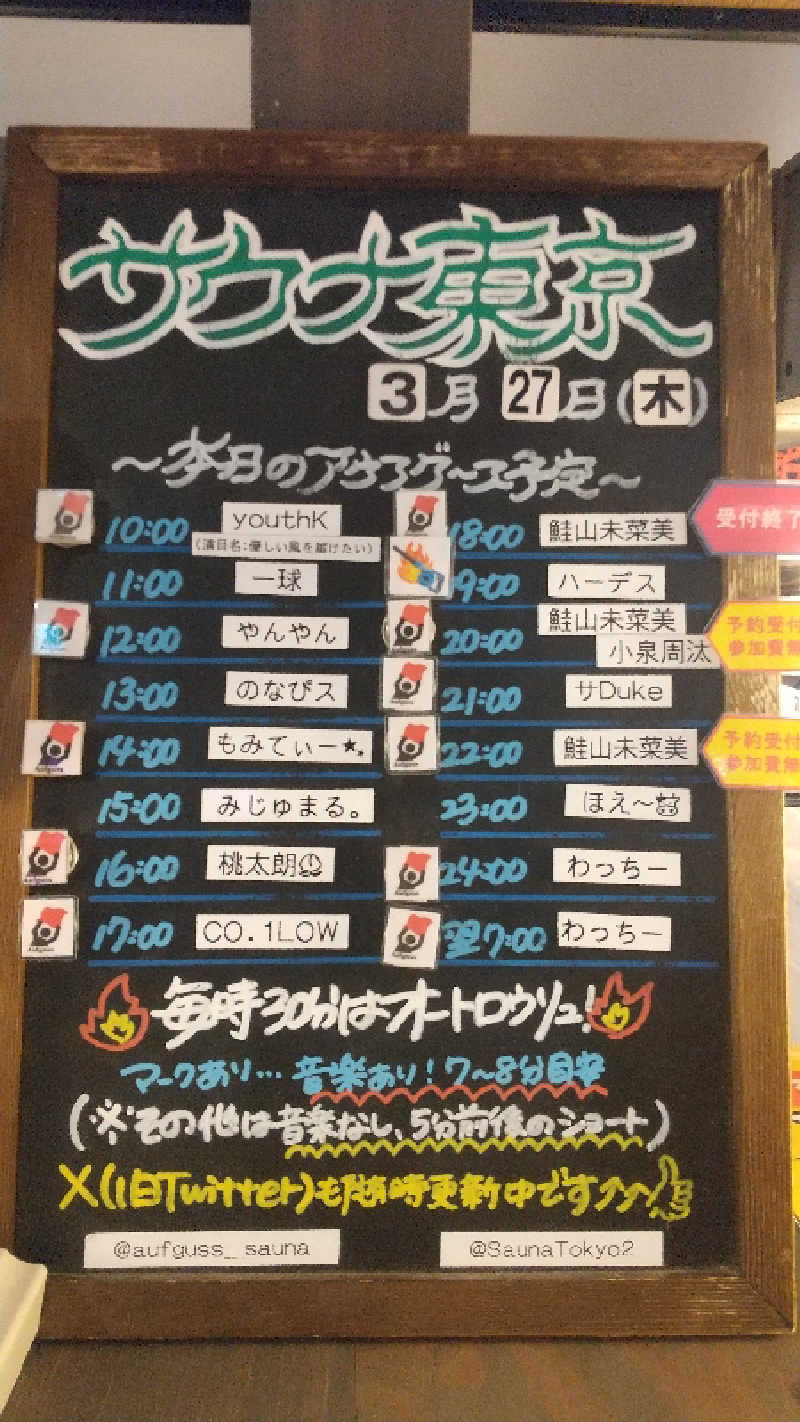 サウナ東京
3月27日(木)
～本日のアウフグース予定～
10:00 youthK
(演目名:優しい風を届けたい)
11:00 一球
12:00 やんやん
13:00 のなぴス
14:00 もみてぃー★。
15:00 みじゅまる。
16:00 桃太朗
17:00 CO.1LOW
18:00 鮭山未菜美
受付終了
19:00 ハーデス
20:00 鮭山未菜美
小泉周汰
予約受付
参加費無
21:00 サDuke
22:00 鮭山未菜美
予約受付
参加費無
23:00 ほえ～
24:00 わっちー
翌7:00 わっちー
毎時30分はオートロウリュ!
マークあり…音楽あり!7～8分目安
(※その他は音楽なし、5分前後のショート)
X(旧Twitter)も随時更新中です
@aufguss_sauna
@SaunaTokyo2